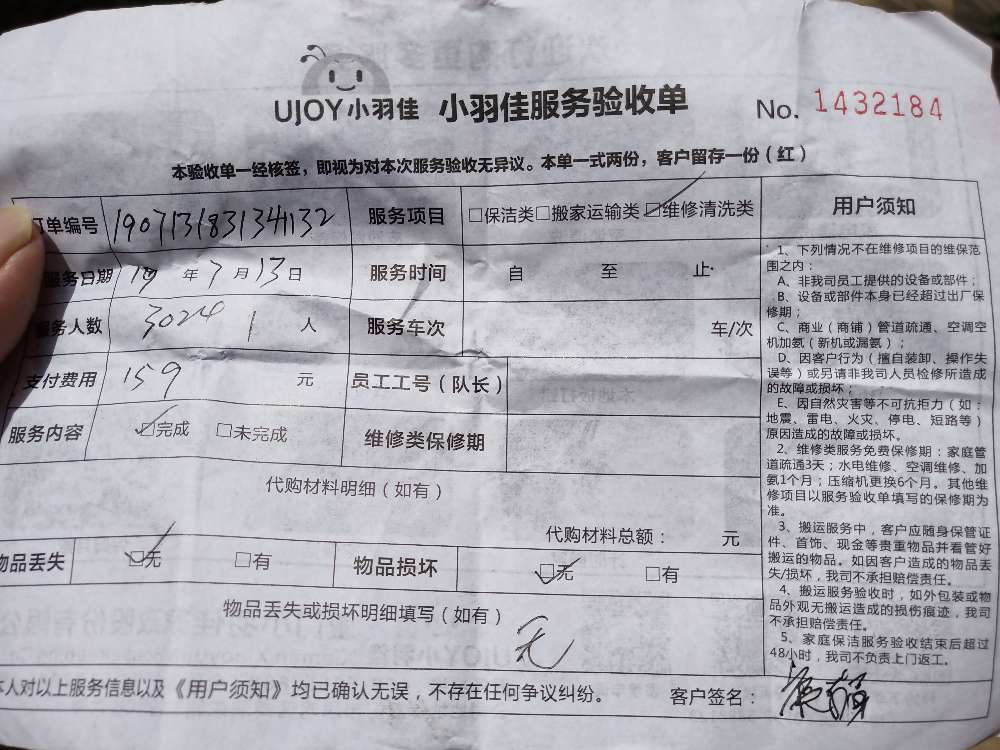 UJOY小羽佳 小羽佳服务验收单 No. 1432184
本验收单一经核签，即视为对本次服务验收无异议。本单一式两份，客户留存一份（红）
订单编号 190713183134132 服务项目 □保洁类□搬家运输类☑维修清洗类
服务日期 19 年 7 月 13 日 服务时间 自 至 止
服务人数 3024 1 人 服务车次 车/次
支付费用 159 元 员工工号（队长）
服务内容 ☑完成 □未完成 维修类保修期
代购材料明细（如有）
代购材料总额： 元
物品丢失 ☑无 □有 物品损坏 ☑无 □有
物品丢失或损坏明细填写（如有）
无
本人对以上服务信息以及《用户须知》均已确认无误，不存在任何争议纠纷。 客户签名：
用户须知
1、下列情况不在维修项目的维保范
围之内：
A、非我司员工提供的设备或部件；
B、设备或部件本身已经超过出厂保
修期；
C、商业（商铺）管道疏通、空调空
机加氨（新机或漏氨）；
D、因客户行为（擅自装卸、操作失
误等）或另请非我司人员检修所造成
的故障或损坏；
E、因自然灾害等不可抗拒力（如：
地震、雷电、火灾、停电、短路等）
原因造成的故障或损坏。
2、维修类服务免费保修期：家庭管
道疏通3天；水电维修、空调维修、加
氨1个月；压缩机更换6个月。其他维
修项目以服务验收单填写的保修期为
准。
3、搬运服务中，客户应随身保管证
件、首饰、现金等贵重物品并看管好
搬运的物品。如因客户造成的物品丢
失/损坏，我司不承担赔偿责任。
4、搬运服务验收时，如外包装或物
品外观无搬运造成的损伤痕迹，我司
不承担赔偿责任。
5、家庭保洁服务验收结束后超过
48小时，我司不负责上门返工。